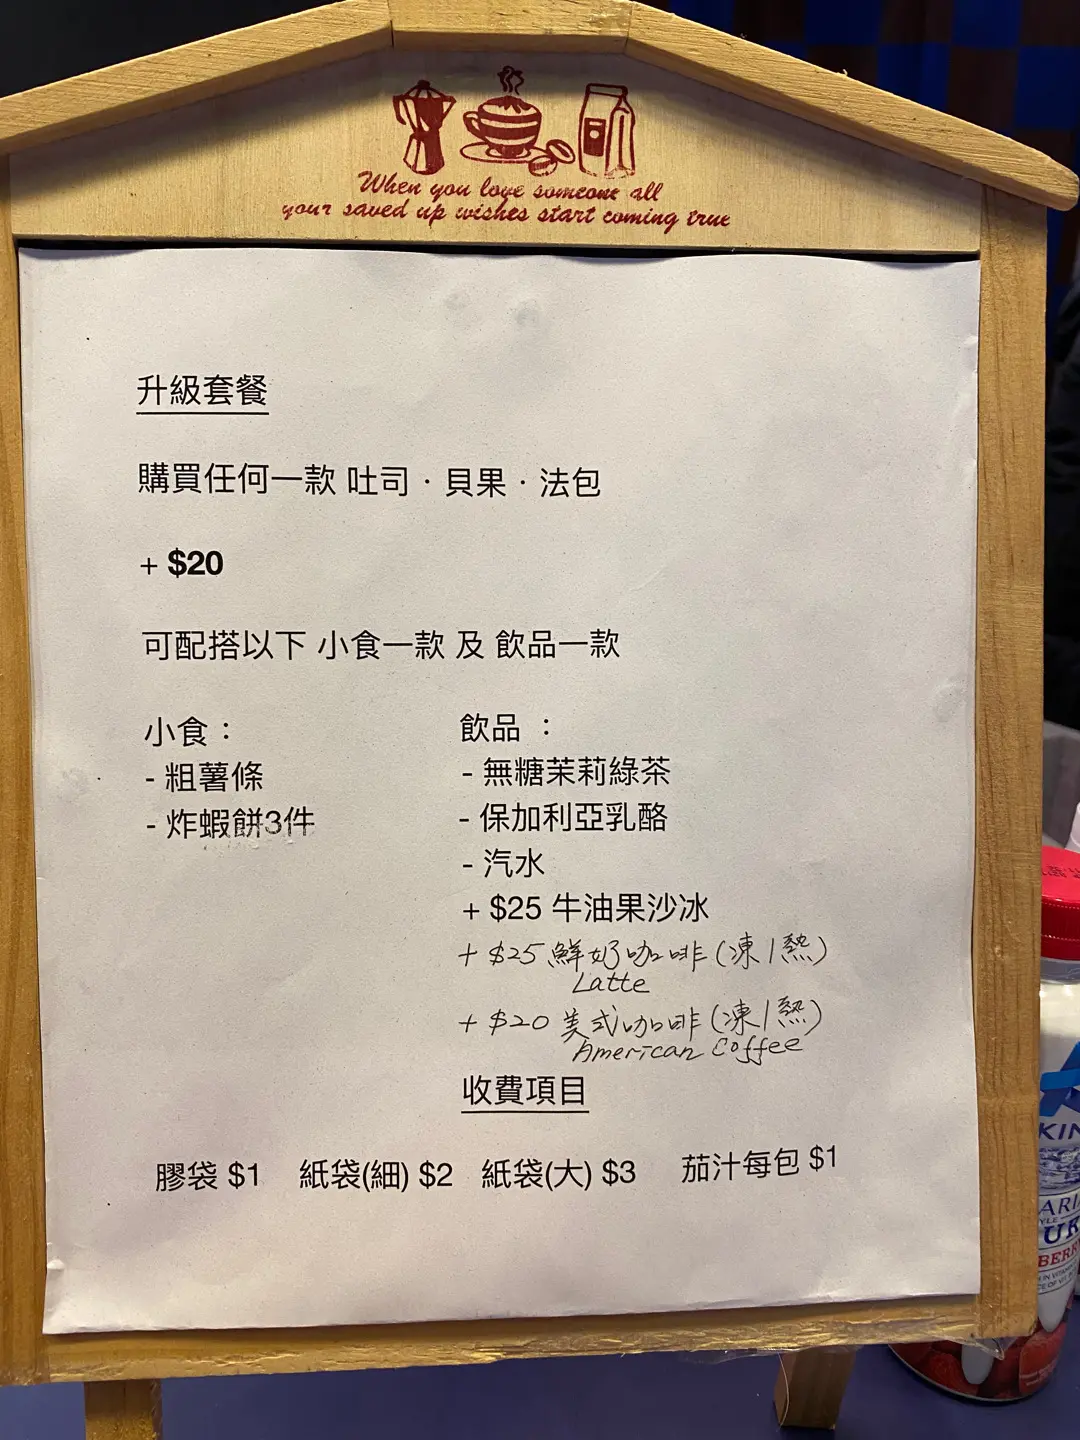 When you love someone all
your saved up wishes start coming true
升級套餐
購買任何一款 吐司 · 貝果 · 法包
+ $20
可配搭以下 小食一款 及 飲品一款
小食：
- 粗薯條
- 炸蝦餅3件
飲品 ：
- 無糖茉莉綠茶
- 保加利亞乳酪
- 汽水
+ $25 牛油果沙冰
+ $25 鮮奶咖啡(凍/熱)
Latte
+ $20 美式咖啡(凍/熱)
American Coffee
收費項目
膠袋 $1 紙袋(細) $2 紙袋(大) $3 茄汁每包 $1
KIN
ARI
YLE
UR
BERR